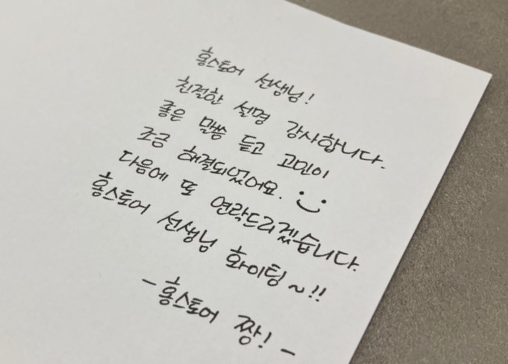 홍스토어 선생님!
친절한 설명 감사합니다.
좋은 말씀 듣고 고민이
조금 해결되었어요. :)
다음에 또 연락드리겠습니다.
홍스토어 선생님 화이팅~!!
-홍스토어 짱!-